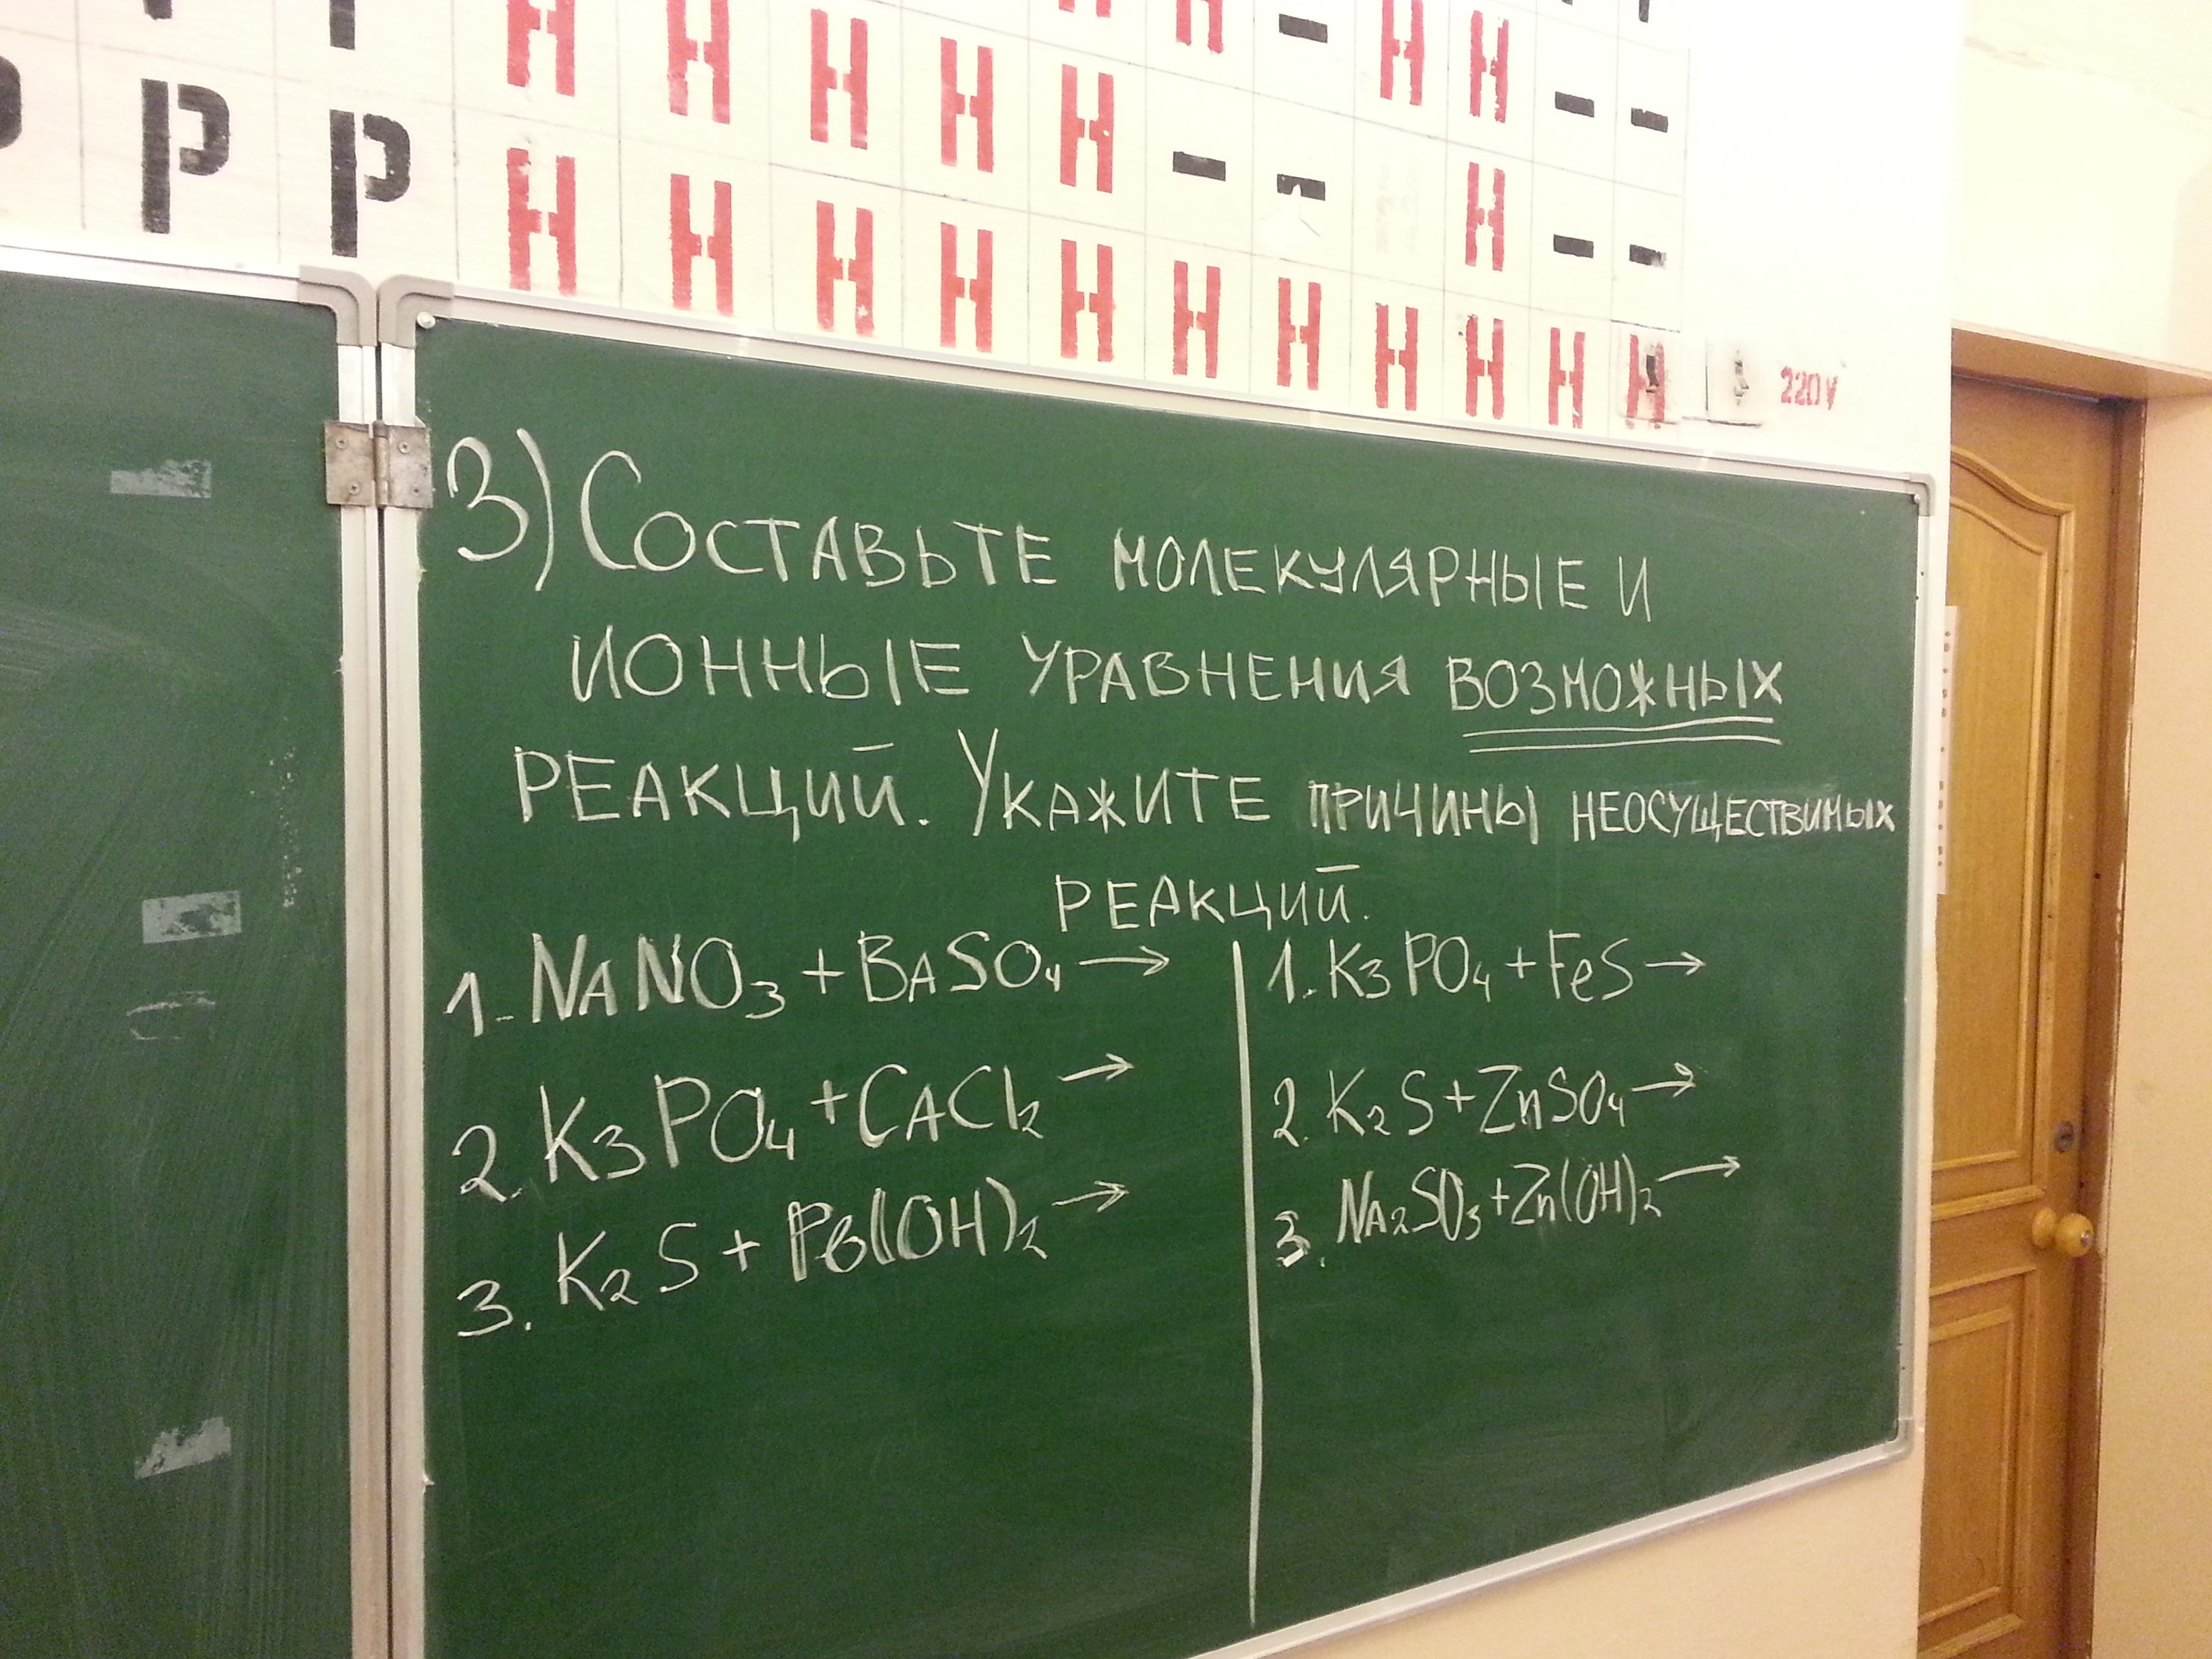 Н Н
Р Н Н Н Н Н – Н Н – –
Р Р Н Н Н Н Н – – Н – –
Р Н Н Н Н Н Н Н Н Н Н Н
220V
3) Составьте молекулярные и
ионные уравнения возможных
реакций. Укажите причины неосуществимых
реакций.
1. NaNO₃ + BaSO₄ →
2. K₃PO₄ + CaCl₂ →
3. K₂S + Pb(OH)₂ →
1. K₃PO₄ + FeS →
2. K₂S + ZnSO₄ →
3. Na₂SO₃ + Zn(OH)₂ →